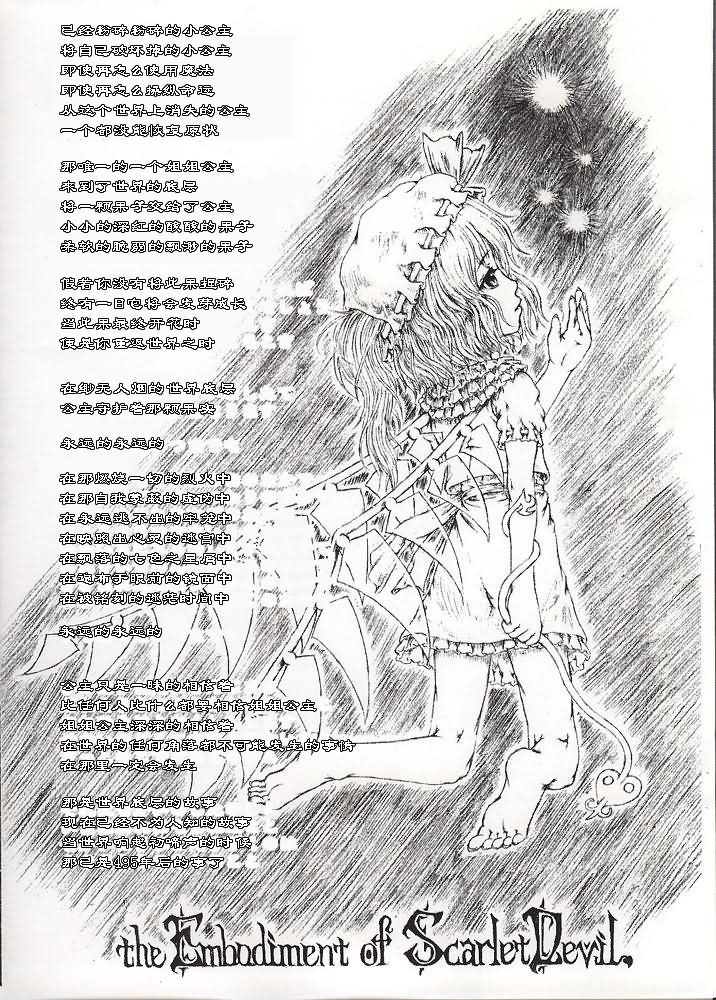 已经粉碎粉碎的小公主
将自己破坏掉的小公主
即使再怎么使用魔法
即使再怎么操纵命运
从这个世界上消失的公主
一个都没能恢复原状
那唯一的一个姐姐公主
来到了世界的底层
将一颗果子交给了公主
小小的深红的酸酸的果子
柔软的脆弱的飘渺的果子
假若你没有将此果捏碎
终有一日它将会发芽成长
当此果最终开花时
便是你重返世界之时
在缈无人烟的世界底层
公主守护着那颗果实
永远的永远的
在那燃烧一切的烈火中
在那自我蒙蔽的虚伪中
在永远逃不出的牢笼中
在映照出心灵的迷宫中
在飘落的七色之星屑中
在遍布于眼前的镜面中
在被铭刻的迷茫时间中
永远的永远的
公主只是一味的相信着
比任何人比什么都要相信姐姐公主
姐姐公主深深的相信着
在世界的任何角落都不可能发生的事情
在那里一定会发生
那是世界底层的故事
现在已经不为人知的故事
当世界响起初啼声的时候
那已是495年后的事了
the Embodiment of Scarlet Devil.